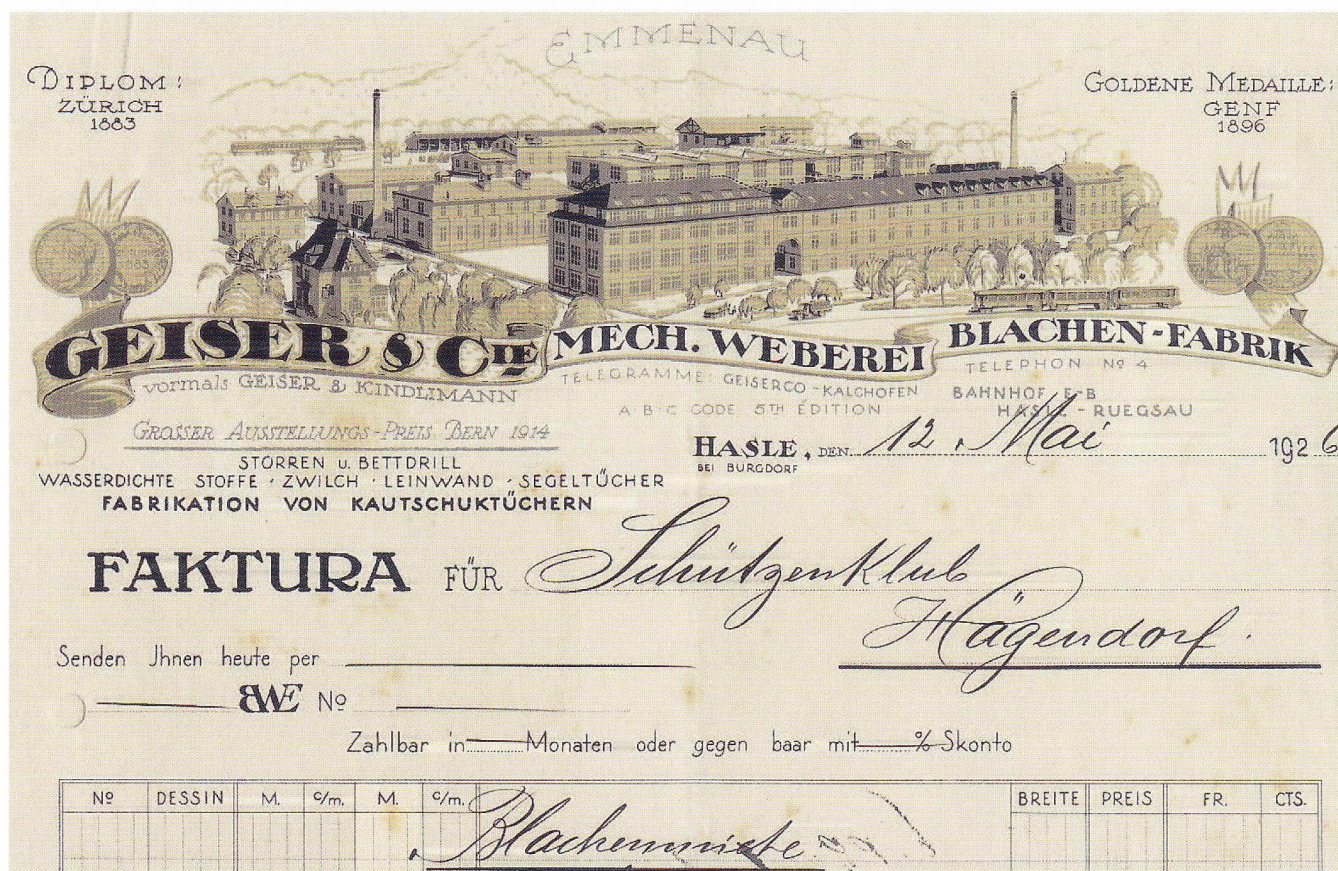 EMMENAU
DIPLOM:
ZÜRICH
1883
GOLDENE MEDAILLE:
GENF
1896
GEISER & CIE MECH. WEBEREI BLACHEN-FABRIK
vormals GEISER & KINDLIMANN
TELEGRAMME: GEISERCO-KALCHOFEN
A·B·C CODE 5TH ÉDITION
TELEPHON No 4
BAHNHOF E-B
HASLE-RUEGSAU
GROSSER AUSSTELLUNGS-PREIS BERN 1914
STORREN u. BETTDRILL
WASSERDICHTE STOFFE · ZWILCH · LEINWAND · SEGELTÜCHER
FABRIKATION VON KAUTSCHUKTÜCHERN
HASLE, DEN 12. Mai 1926
BEI BURGDORF
FAKTURA FÜR Schützenklub
Hägendorf.
Senden Jhnen heute per
No
Zahlbar in Monaten oder gegen baar mit % Skonto
No DESSIN M. c/m. M. c/m. BREITE PREIS FR. CTS.
Blachenmiete